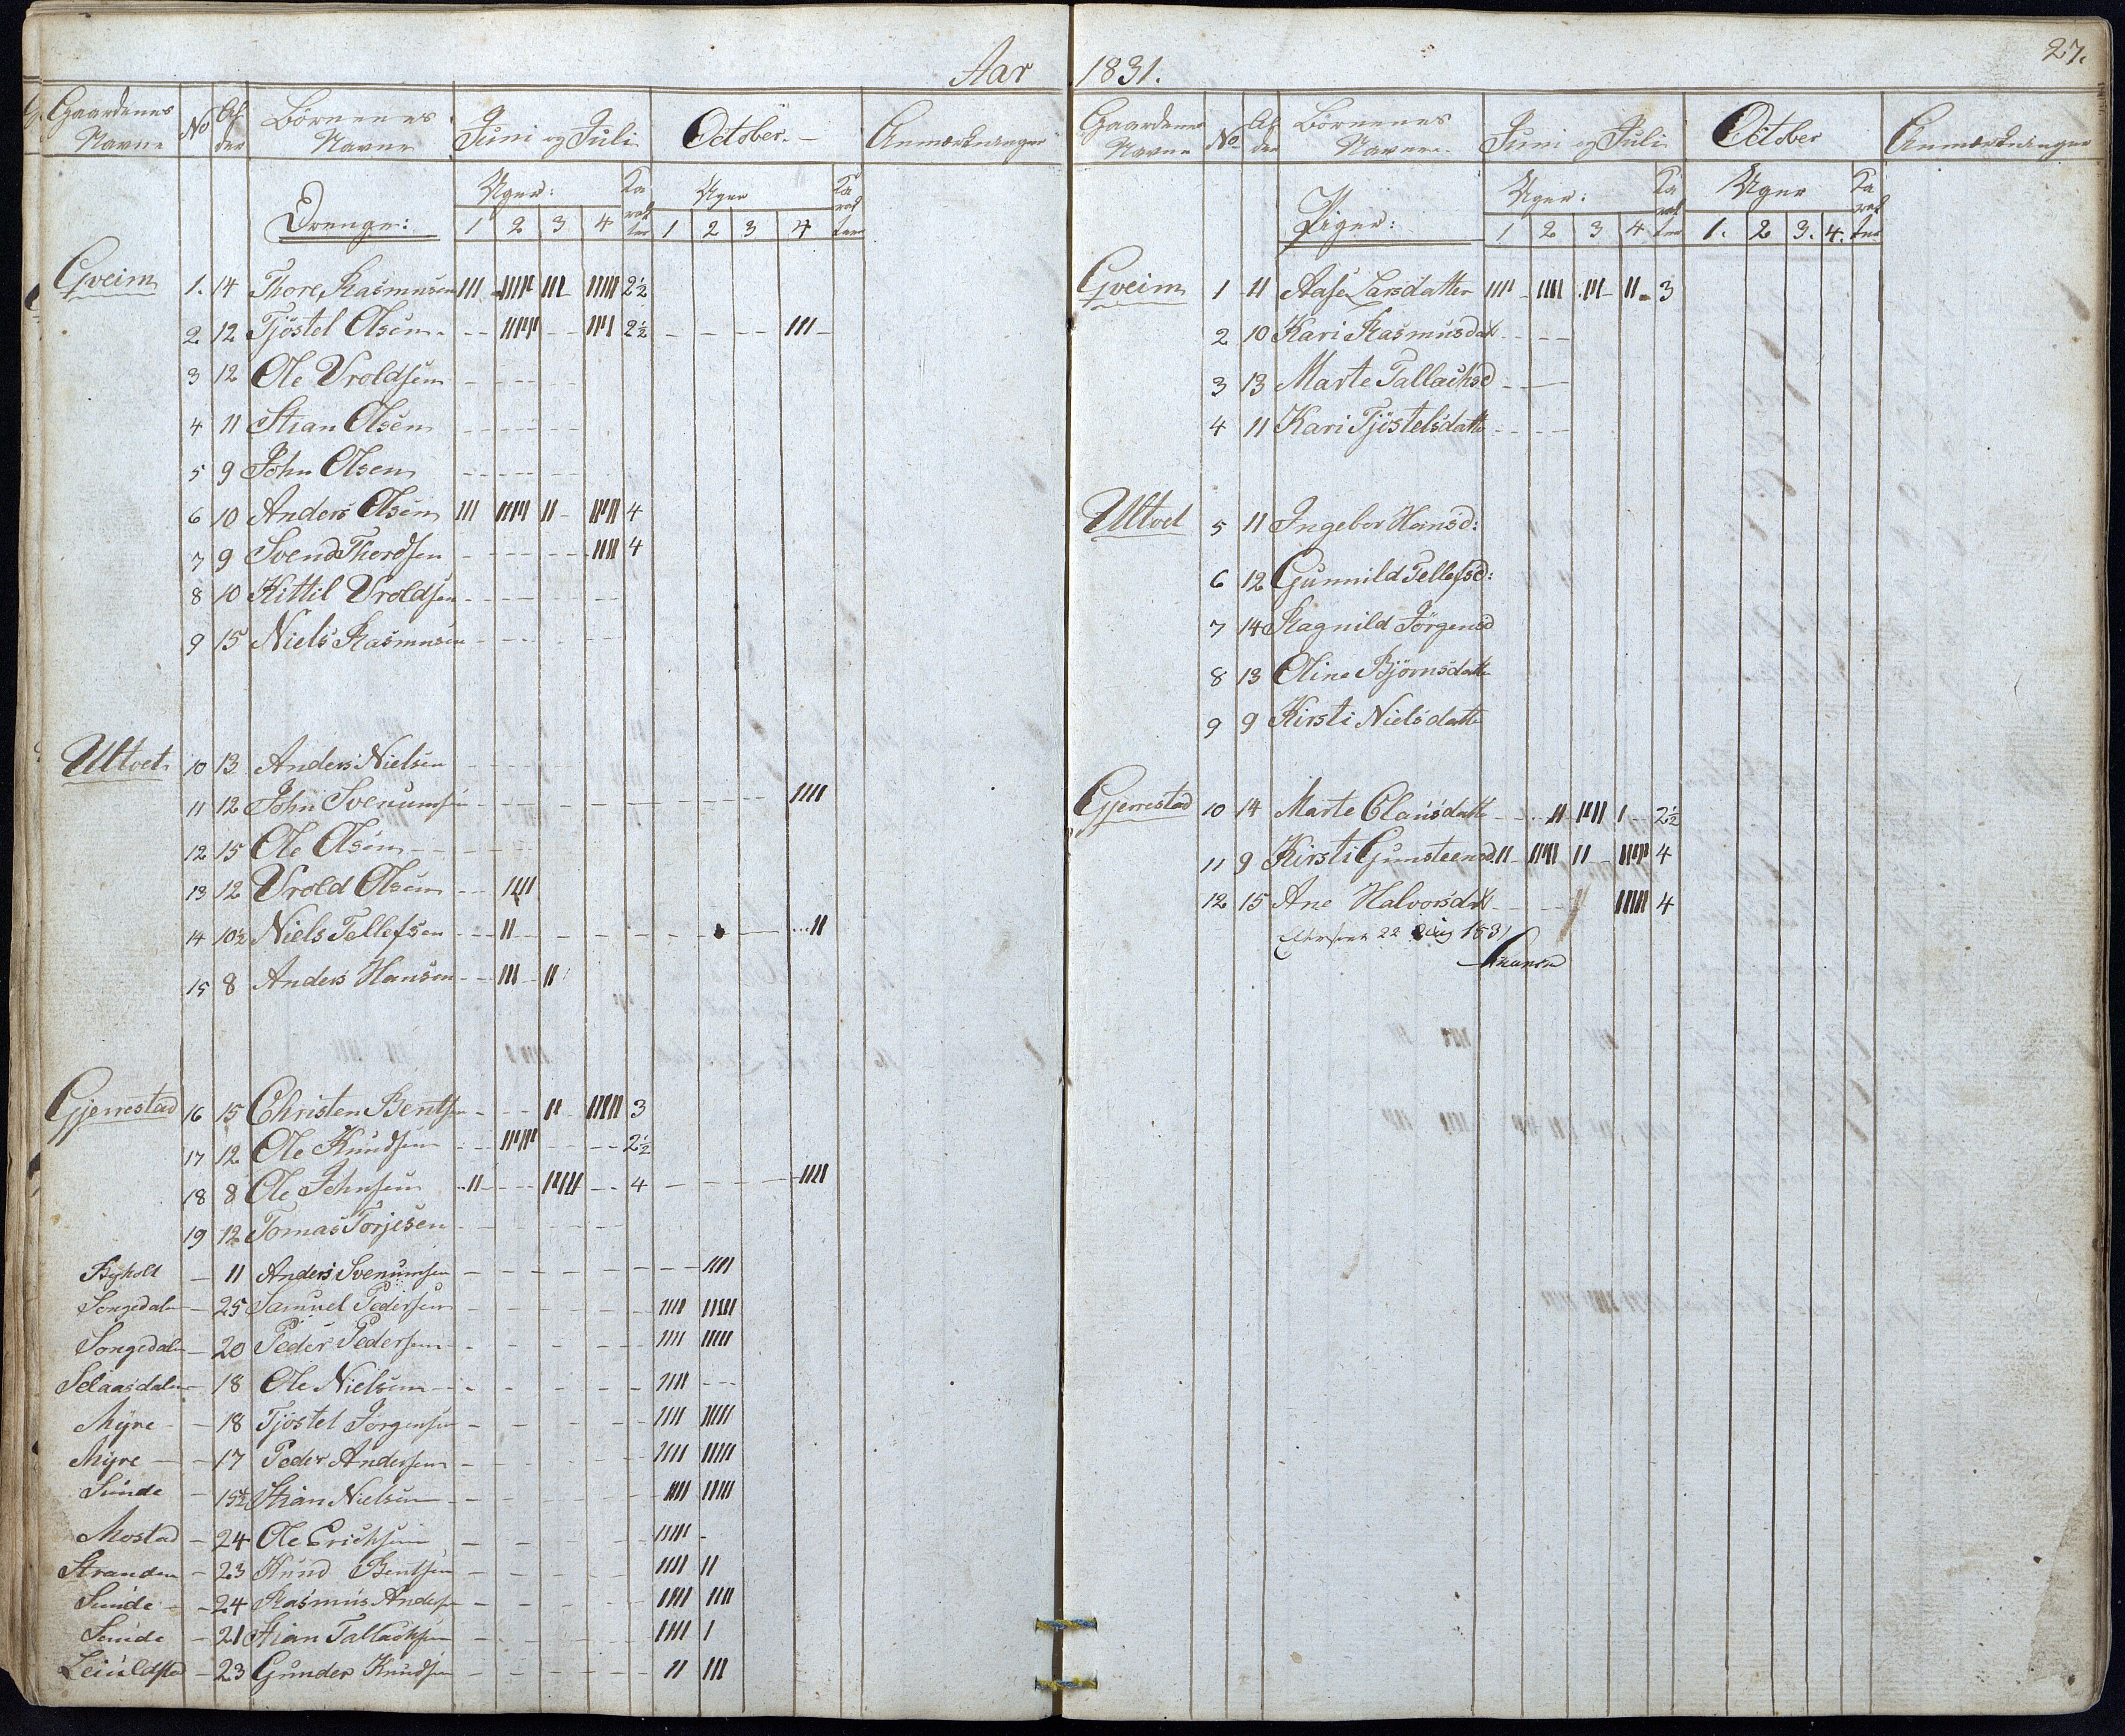 Aar 1831.
27.
Gaardenes Navne No Al der Börnenes Navne Juni og Juli October. Anmærkninger
Drenge: Uger: 1 2 3 4 Ka rak ter Uger 1 2 3 4 Ka rak teer
Gveim 1. 14 Thore Rasmusen III IIIII III IIIII 2½
2 12 Tjöstel Olsen - - IIIII - - IIII 2½ - - - - III -
3 12 Ole Vroldsen - - - -
4 11 Stian Olsen - - - - -
5 9 John Olsen - - - - -
6 10 Anders Olsen III IIIII II - IIIII 4
7 9 Svend Thordsen - - - - - IIII 4
8 10 Kittil Vroldsen - - - - - -
9 15 Niels Rasmusen - - - - -
Ultvet 10 13 Anders Nielsen - - - -
11 12 John Svenumsen - - - - - - - - - IIII
12 15 Ole Olsen - - - -
13 12 Vrold Olsen - - IIII
14 10½ Niels Tellefsen - - II - - - - - - II
15 8 Anders Hansen - - III - II
Gjerrestad 16 15 Christen Bentsen - - - II - IIIII 3
17 12 Ole Knudsen - - IIIII - - - - 2½
18 8 Ole Johnsen II - - - IIII - - 4 - - - - IIII
19 12 Tomas Torjesen - - - - - -
- 11 Anders Svenumsen - - - - - - - IIII
Songedalen - 25 Samuel Pedersen - - - - - IIII IIIII
Songedalen - 20 Peder Pedersen - - - - - IIII IIIII
Selaasdalen - 18 Ole Nielsen - - - - - IIII - - -
Myre - - 18 Tjöstel Jörgensen - - - - - IIII IIIII
Myre - - 17 Peder Andersen - - - - - IIII IIIII
Sunde - 15½ Stian Nielsen - - - - - IIII IIIII
Mostad - 24 Ole Erichsen - - - - - IIIII -
Stranden - 23 Knud Bentsen - - - - - IIII II
Sunde - - 24 Rasmus Anders - - - - - IIII IIII
Sunde - 21 Stian Tallachsen - - - - - IIII I
Leiuldstad - 23 Gunder Knudsen - - - - - II III
Gaardenes Navne No. Al der Börnenes Navne. Juni og Juli October Anmærkninger
Piger: Uger: 1 2 3 4 Ka rak ter Uger 1. 2 3. 4. Ka rak ter
Gveim 1 11 Aase Larsdatter IIII - IIII III - II - 3
2 10 Kari Rasmusdat - - - -
3 13 Marte Tallachsd - - -
4 11 Kari Tjöstelsdatte - - - -
Ultvet 5 11 Ingebor Hansd:
6 12 Gunnild Tellefsd:
7 14 Ragnild Jörgensd
8 13 Oline Björnsdatte
9 9 Kirsti Nielsdatte
Gjerrestad 10 14 Marte Olausdatte - - - II IIII I - - 2½
11 9 Kirsti Gunsteensd. II - IIIII II - IIIII 4
12 15 Ane Halvorsdat - - - - IIIII 4
22 1831